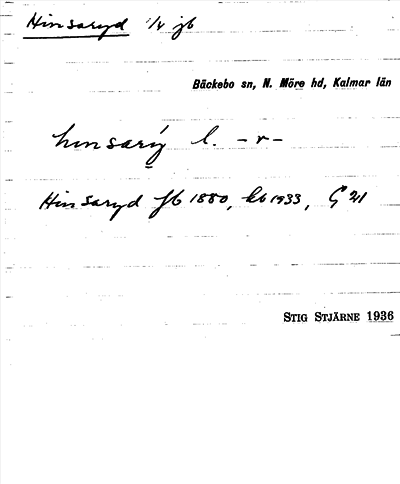 Hinsaryd 1/4 jb
Bäckebo sn, N. Möre hd, Kalmar län
hinsarý l. -r-
Hinsaryd fb 1880, kb 1933, G 21
STIG STJÄRNE 1936